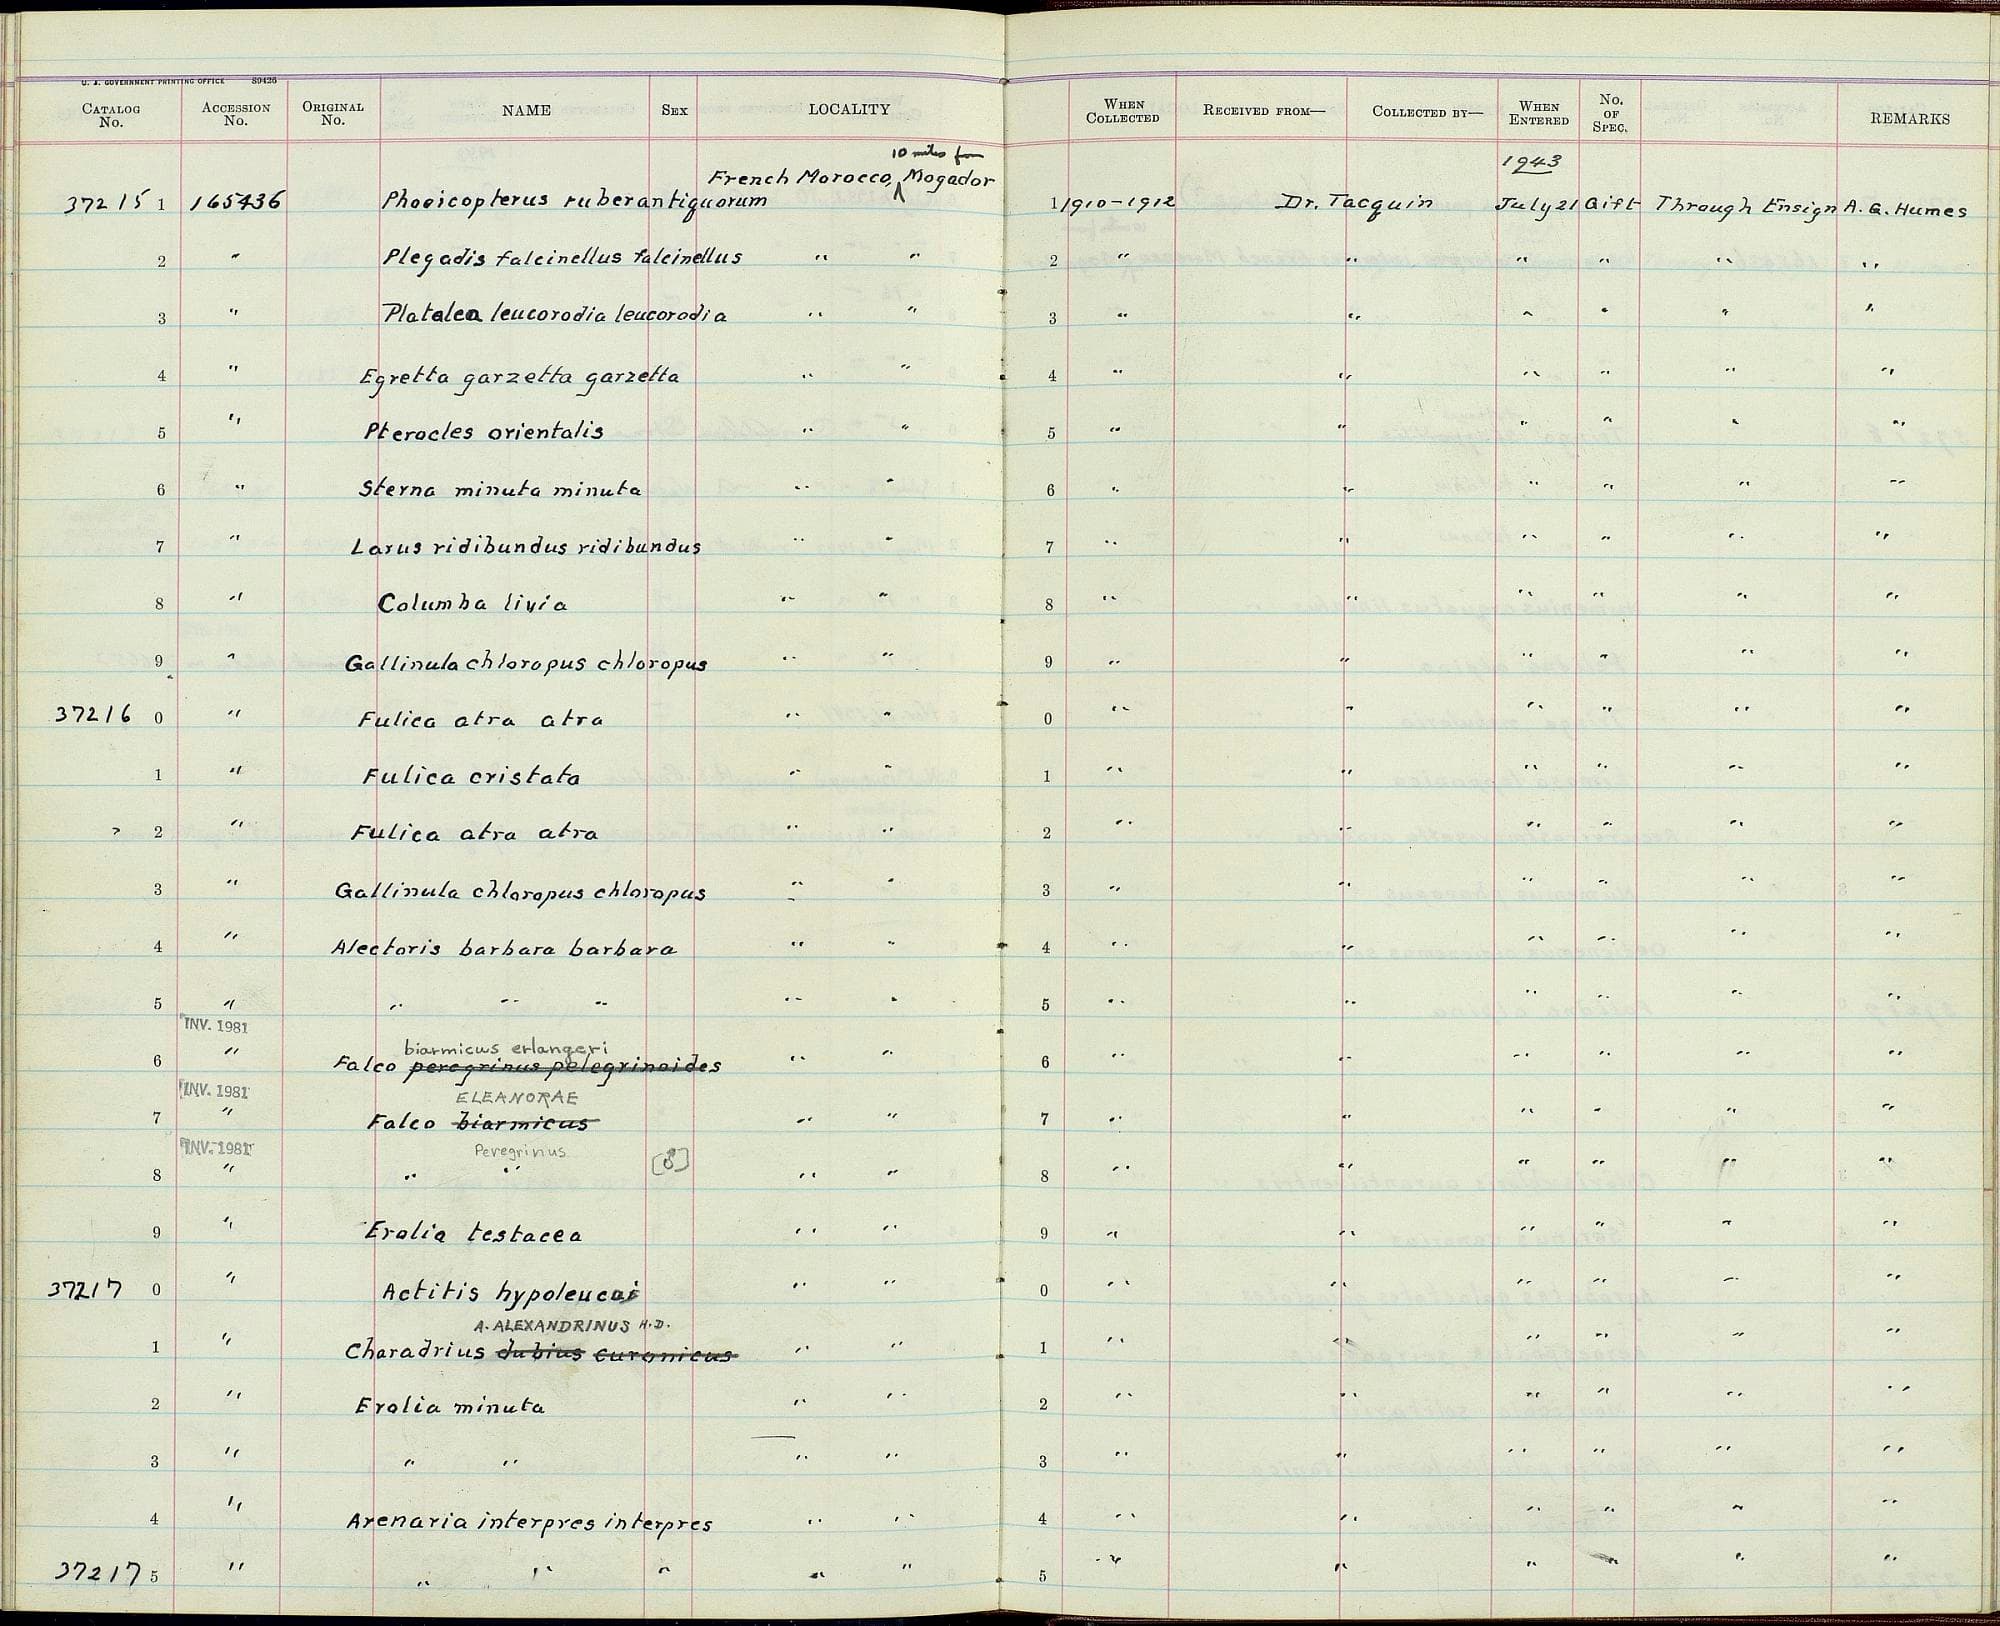 U. S. GOVERNMENT PRINTING OFFICE 89426
CATALOG No. ACCESSION No. ORIGINAL No. NAME SEX LOCALITY WHEN COLLECTED RECEIVED FROM— COLLECTED BY— WHEN ENTERED No. OF SPEC. REMARKS
10 miles from 1943
French Morocco, ^ Mogador
37215 1 165436 Phoeicopterus ruber antiquorum 1 1910-1912 Dr. Tacquin July 21 Gift Through Ensign A. G. Humes
2 " Plegadis falcinellus falcinellus " " 2 " " " " " "
3 " Platalea leucorodia leucorodia " " 3 " " " " " "
4 " Egretta garzetta garzetta " " 4 " " " " " "
5 " Pterocles orientalis " " 5 " " " " " "
6 " Sterna minuta minuta " " 6 " " " " " "
7 " Larus ridibundus ridibundus " " 7 " " " " " "
8 " Columba livia " " 8 " " " " " "
9 " Gallinula chloropus chloropus " " 9 " " " " " "
37216 0 " Fulica atra atra " " 0 " " " " " "
1 " Fulica cristata " " 1 " " " " " "
2 " Fulica atra atra " " 2 " " " " " "
3 " Gallinula chloropus chloropus " " 3 " " " " " "
4 " Alectoris barbara barbara " " 4 " " " " " "
5 " " " " " " 5 " " " " " "
INV. 1981
biarmicus erlangeri
6 " Falco peregrinus pelegrinoides " " 6 " " " " " "
INV. 1981 ELEANORAE
7 " Falco biarmicus " " 7 " " " " " "
INV. 1981 Peregrinus
8 " " " [♂] " " 8 " " " " " "
9 " Erolia testacea " " 9 " " " " " "
37217 0 " Actitis hypoleucos " " 0 " " " " " "
A. ALEXANDRINUS H.D.
1 " Charadrius dubius curonicus " " 1 " " " " " "
2 " Erolia minuta " " 2 " " " " " "
3 " " " " " 3 " " " " " "
4 " Arenaria interpres interpres " " 4 " " " " " "
37217 5 " " " " " " 5 " " " " " "